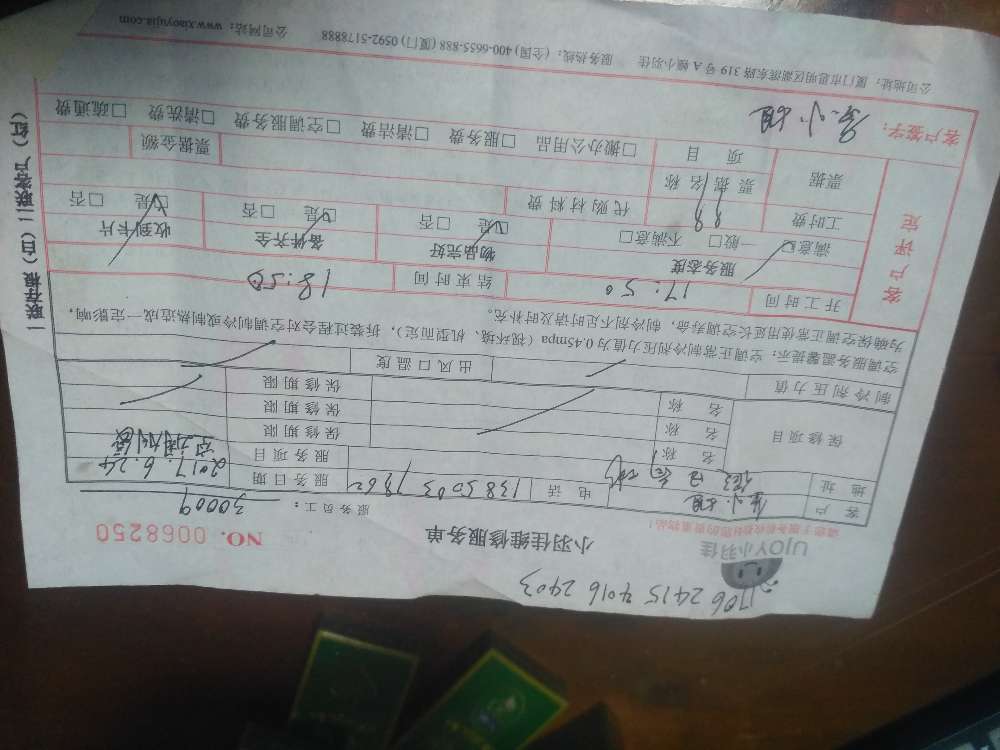 1706 2415 4016 2403
UJOY小羽佳
小羽佳维修服务单
NO. 0068250
请您于服务前收好您的贵重物品！
服务员工： 30009
客户
电话 138 5003 7862
服务日期 2017.6.24
地址
服务项目
保修项目
名称 保修期限
名称 保修期限
名称 保修期限
制冷剂压力值 出风口温度
空调服务温馨提示：空调正常制冷剂压力值为0.45mpa（视环境、机型而定），拆装过程会对空调制冷或制热造成一定影响，
为确保空调正常使用延长空调寿命，制冷剂不足时请及时补充。
客户评定
开工时间 17:50 结束时间 18:50
服务态度 物品完好 备件齐全 收到卡片
满意☑ 一般□ 不满意□ ☑是 □否 ☑是 □否 ☑是 □否
工时费 代购材料费
票据 票据名称 票据金额
项目 □搬办公用品 □服务费 □清洁费 □空调服务费 □清洗费 □疏通费
客户签字：
公司地址：厦门市思明区湖滨东路319号A幢小羽佳 服务热线：（全国）400-6655-888（厦门）0592-5178888 公司网站：www.xiaoyujia.com
一联存根（白）二联客户（红）